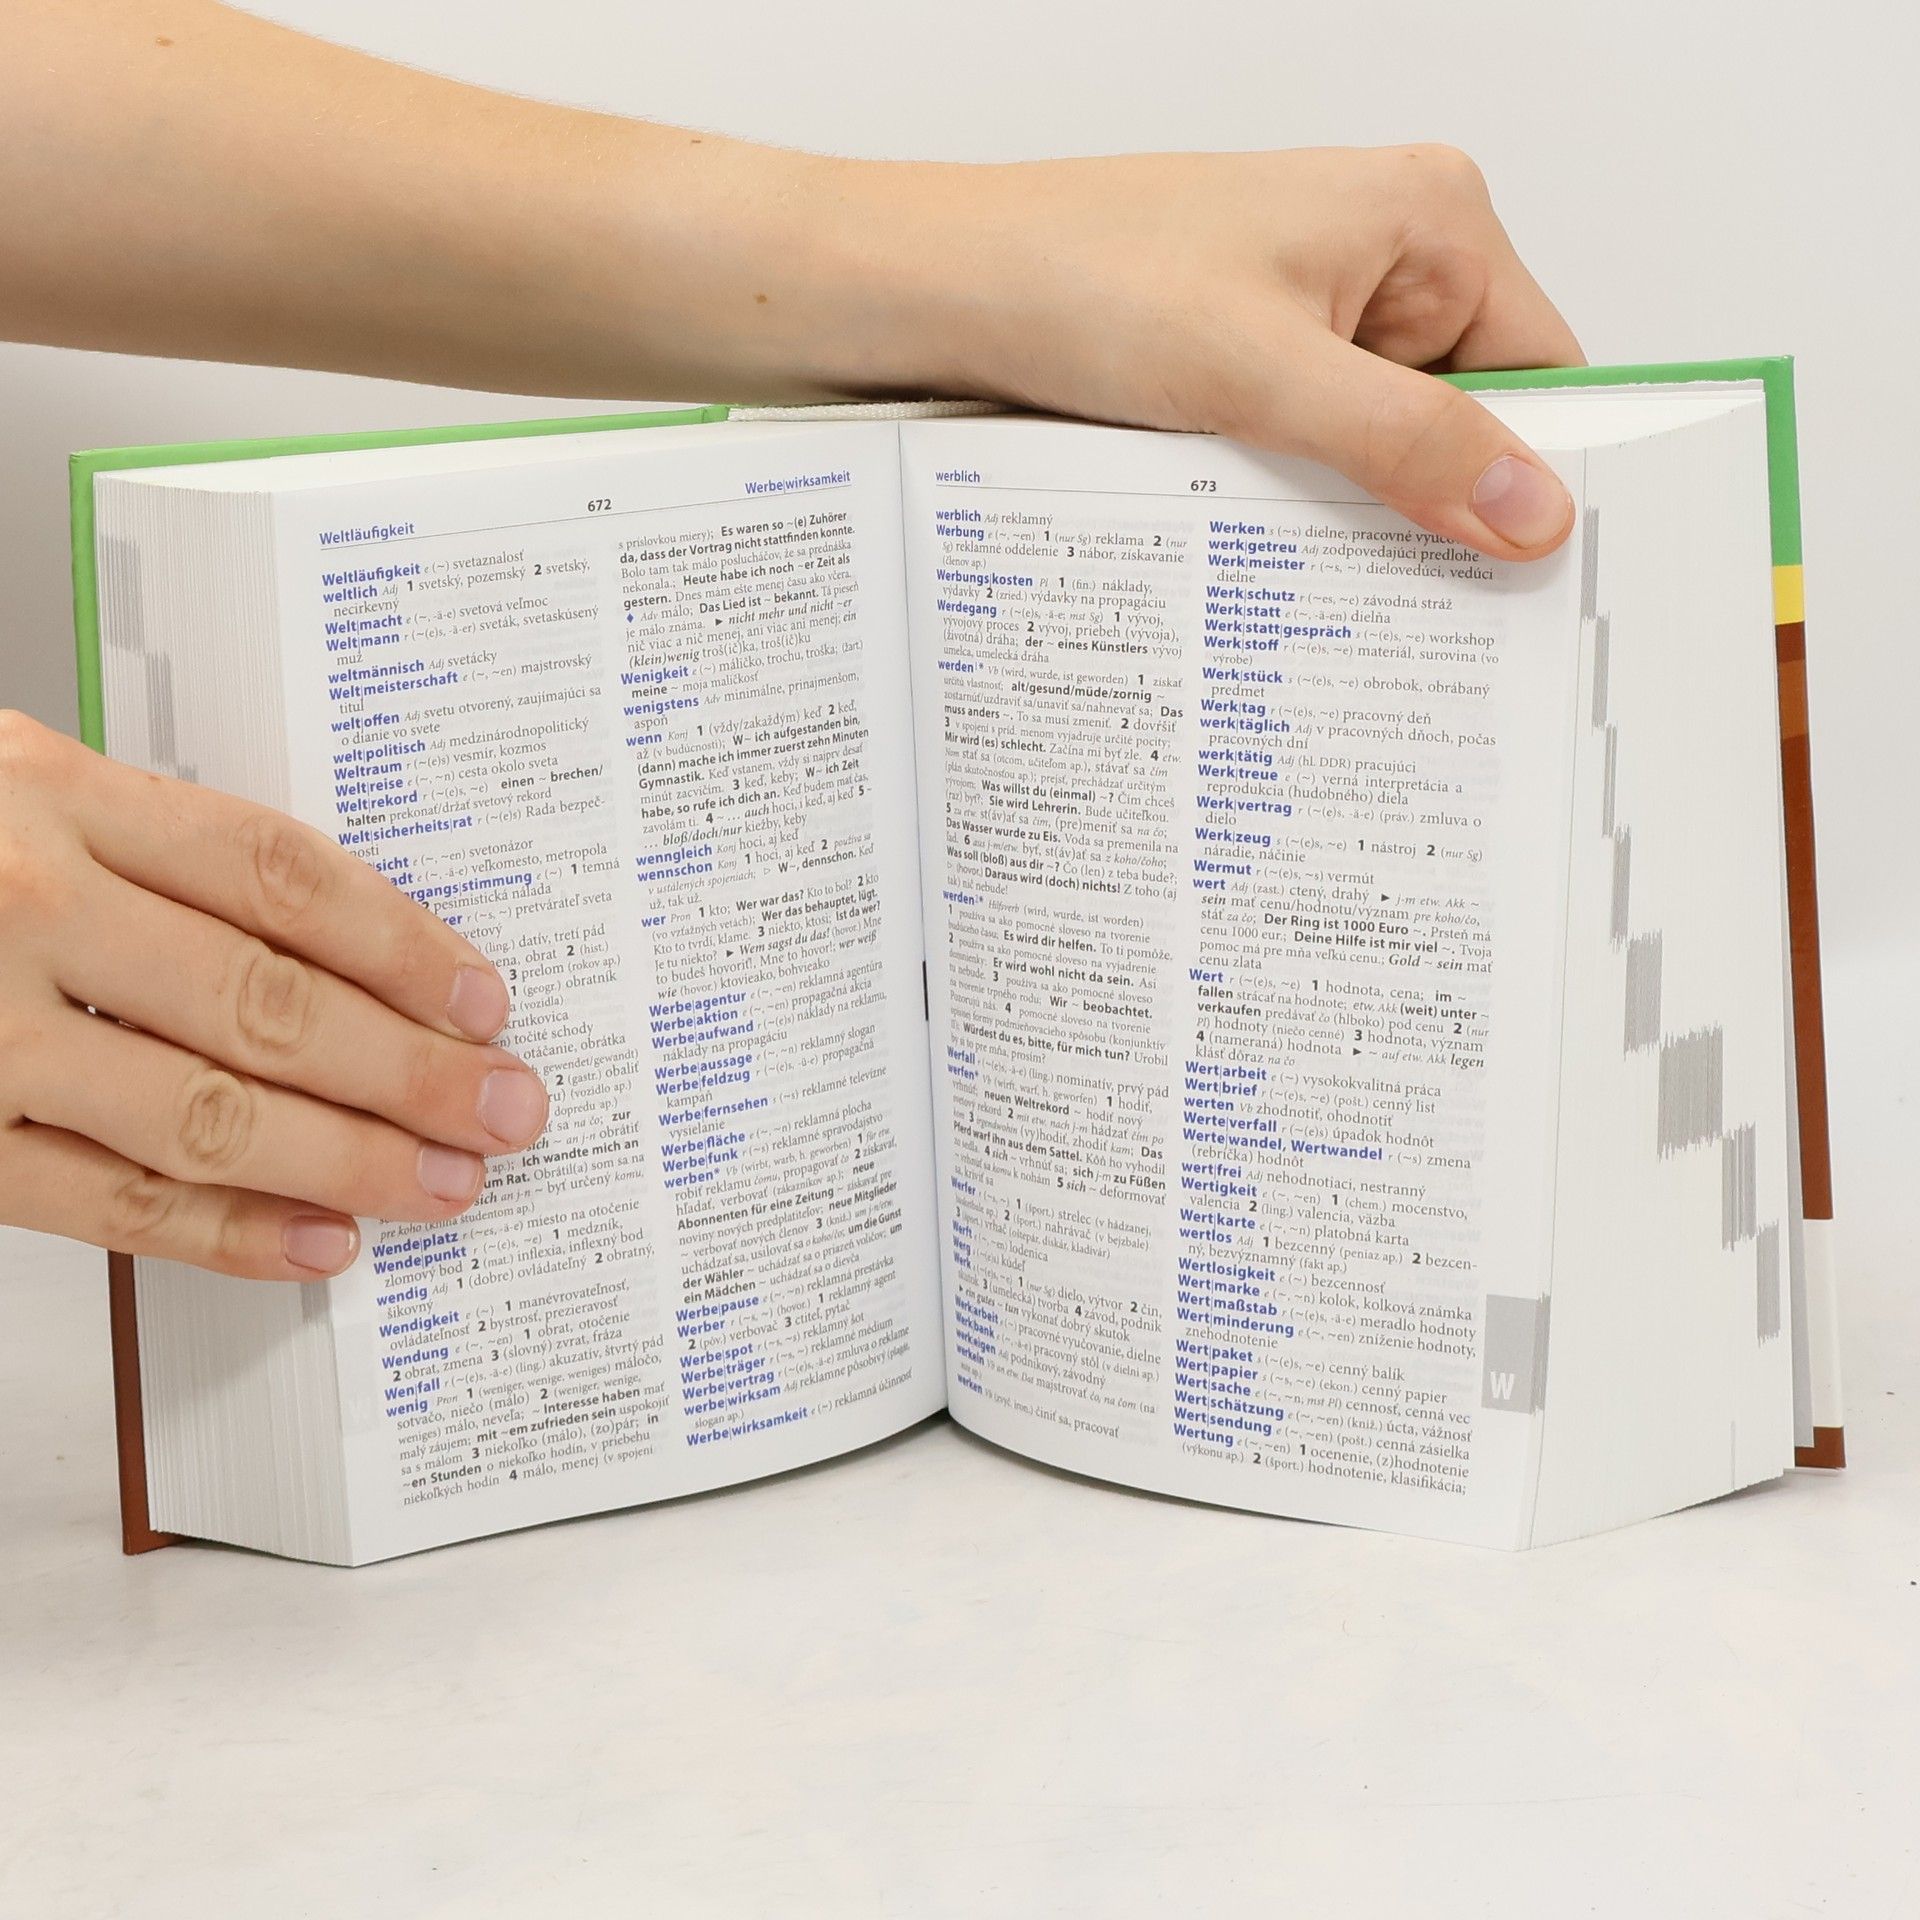 Weltläufigkeit
672
Werbe|wirksamkeit
Weltläufigkeit e (~) svetaznalosť
weltlich Adj 1 svetský, pozemský 2 svetský,
necirkevný
Welt|macht e (~, -ä-e) svetová veľmoc
Welt|mann r (~(e)s, -ä-er) sveták, svetaskúsený
muž
weltmännisch Adj svetácky
Welt|meisterschaft e (~, ~en) majstrovský
titul
welt|offen Adj svetu otvorený, zaujímajúci sa
o dianie vo svete
welt|politisch Adj medzinárodnopolitický
Weltraum r (~(e)s) vesmír, kozmos
Welt|reise e (~, ~n) cesta okolo sveta
Welt|rekord r (~(e)s, ~e) einen ~ brechen/
halten prekonať/držať svetový rekord
Welt|sicherheits|rat r (~(e)s) Rada bezpeč-
nosti
sicht e (~, ~en) svetonázor
adt e (~, -ä-e) veľkomesto, metropola
rgangs|stimmung e (~) 1 temná
2 pesimistická nálada
rer r (~s, ~) pretvárateľ sveta
vetový
(ling.) datív, tretí pád
ena, obrat 2 (hist.)
3 prelom (rokov ap.)
1 (geogr.) obratník
a (vozidla)
krutkovica
n) točité schody
otáčanie, obrátka
h. gewendet/gewandt)
2 (gastr.) obaliť
ru) (vozidlo ap.)
dopredu ap.)
ať sa na čo; zur
sich ~ an j-n obrátiť
ap.); Ich wandte mich an
um Rat. Obrátil(a) som sa na
sich an j-n ~ byť určený komu,
pre koho (kniha študentom ap.)
Wende|platz r (~es, -ä-e) miesto na otočenie
Wende|punkt r (~(e)s, ~e) 1 medzník,
zlomový bod 2 (mat.) inflexia, inflexný bod
wendig Adj 1 (dobre) ovládateľný 2 obratný,
šikovný
Wendigkeit e (~) 1 manévrovateľnosť,
ovládateľnosť 2 bystrosť, prezieravosť
Wendung e (~, ~en) 1 obrat, otočenie
2 obrat, zmena 3 (slovný) zvrat, fráza
Wen|fall r (~(e)s, -ä-e) (ling.) akuzatív, štvrtý pád
wenig Pron 1 (weniger, wenige, weniges) máločo,
sotvačo, niečo (málo) 2 (weniger, wenige,
weniges) málo, neveľa; ~ Interesse haben mať
malý záujem; mit ~em zufrieden sein uspokojiť
sa s málom 3 niekoľko (málo), (zo)pár; in
~en Stunden o niekoľko hodín, v priebehu
niekoľkých hodín 4 málo, menej (v spojení
s príslovkou miery); Es waren so ~(e) Zuhörer
da, dass der Vortrag nicht stattfinden konnte.
Bolo tam tak málo poslucháčov, že sa prednáška
nekonala.; Heute habe ich noch ~er Zeit als
gestern. Dnes mám ešte menej času ako včera.
♦ Adv málo; Das Lied ist ~ bekannt. Tá pieseň
je málo známa. ► nicht mehr und nicht ~er
nič viac a nič menej, ani viac ani menej; ein
(klein)wenig troš(ič)ka, troš(ič)ku
Wenigkeit e (~) máličko, trochu, troška; (žart.)
meine ~ moja maličkosť
wenigstens Adv minimálne, prinajmenšom,
aspoň
wenn Konj 1 (vždy/zakaždým) keď 2 keď,
až (v budúcnosti); W~ ich aufgestanden bin,
(dann) mache ich immer zuerst zehn Minuten
Gymnastik. Keď vstanem, vždy si najprv desať
minút zacvičím. 3 keď, keby; W~ ich Zeit
habe, so rufe ich dich an. Keď budem mať čas,
zavolám ti. 4 ~ … auch hoci, i keď, aj keď 5 ~
… bloß/doch/nur kiežby, keby
wenngleich Konj hoci, aj keď
wennschon Konj 1 hoci, aj keď 2 používa sa
v ustálených spojeniach; ▷ W~, dennschon. Keď
už, tak už.
wer Pron 1 kto; Wer war das? Kto to bol? 2 kto
(vo vzťažných vetách); Wer das behauptet, lügt.
Kto to tvrdí, klame. 3 niekto, ktosi; Ist da wer?
Je tu niekto? ► Wem sagst du das! (hovor.) Mne
to budeš hovoriť!, Mne to hovor!; wer weiß
wie (hovor.) ktovieako, bohvieako
Werbe|agentur e (~, ~en) reklamná agentúra
Werbe|aktion e (~, ~en) propagačná akcia
Werbe|aufwand r (~(e)s) náklady na reklamu,
náklady na propagáciu
Werbe|aussage e (~, ~n) reklamný slogan
Werbe|feldzug r (~(e)s, -ü-e) propagačná
kampaň
Werbe|fernsehen s (~s) reklamné televízne
vysielanie
Werbe|fläche e (~, ~n) reklamná plocha
Werbe|funk r (~s) reklamné spravodajstvo
werben* Vb (wirbt, warb, h. geworben) 1 für etw.
robiť reklamu čomu, propagovať čo 2 získavať,
hľadať, verbovať (zákazníkov ap.); neue
Abonnenten für eine Zeitung ~ získavať pre
noviny nových predplatiteľov; neue Mitglieder
~ verbovať nových členov 3 (kniž.) um j-n/etw.
uchádzať sa, usilovať sa o koho/čo; um die Gunst
der Wähler ~ uchádzať sa o priazeň voličov; um
ein Mädchen ~ uchádzať sa o dievča
Werbe|pause e (~, ~n) reklamná prestávka
Werber r (~s, ~) (hovor.) 1 reklamný agent
2 (pôv.) verbovač 3 ctiteľ, pytač
Werbe|spot r (~s, ~s) reklamný šot
Werbe|träger r (~s, ~) reklamné médium
Werbe|vertrag r (~(e)s, -ä-e) zmluva o reklame
werbe|wirksam Adj reklamne pôsobivý (plagát,
slogan ap.)
Werbe|wirksamkeit e (~) reklamná účinnosť
werblich
673
werblich Adj reklamný
Werbung e (~, ~en) 1 (nur Sg) reklama 2 (nur
Sg) reklamné oddelenie 3 nábor, získavanie
(členov ap.)
Werbungs|kosten Pl 1 (fin.) náklady,
výdavky 2 (zried.) výdavky na propagáciu
Werdegang r (~(e)s, -ä-e; mst Sg) 1 vývoj,
vývojový proces 2 vývoj, priebeh (vývoja),
(životná) dráha; der ~ eines Künstlers vývoj
umelca, umelecká dráha
werden¹* Vb (wird, wurde, ist geworden) 1 získať
určitú vlastnosť; alt/gesund/müde/zornig ~
zostarnúť/uzdraviť sa/unaviť sa/nahnevať sa; Das
muss anders ~. To sa musí zmeniť. 2 dovŕšiť
3 v spojení s príd. menom vyjadruje určité pocity;
Mir wird (es) schlecht. Začína mi byť zle. 4 etw.
Nom stať sa (otcom, učiteľom ap.), stávať sa čím
(plán skutočnosťou ap.); prejsť, prechádzať určitým
vývojom; Was willst du (einmal) ~? Čím chceš
(raz) byť?; Sie wird Lehrerin. Bude učiteľkou.
5 zu etw. st(áv)ať sa čím, (pre)meniť sa na čo;
Das Wasser wurde zu Eis. Voda sa premenila na
ľad. 6 aus j-m/etw. byť, st(áv)ať sa z koho/čoho;
Was soll (bloß) aus dir ~? Čo (len) z teba bude?;
▷ (hovor.) Daraus wird (doch) nichts! Z toho (aj
tak) nič nebude!
werden²* Hilfsverb (wird, wurde, ist worden)
1 používa sa ako pomocné sloveso na tvorenie
budúceho času; Es wird dir helfen. To ti pomôže.
2 používa sa ako pomocné sloveso na vyjadrenie
domnienky; Er wird wohl nicht da sein. Asi
tu nebude. 3 používa sa ako pomocné sloveso
na tvorenie trpného rodu; Wir ~ beobachtet.
Pozorujú nás. 4 pomocné sloveso na tvorenie
opisnej formy podmieňovacieho spôsobu (konjunktív
II); Würdest du es, bitte, für mich tun? Urobil
by si to pre mňa, prosím?
Werfall r (~(e)s, -ä-e) (ling.) nominatív, prvý pád
werfen* Vb (wirft, warf, h. geworfen) 1 hodiť,
vrhnúť; neuen Weltrekord ~ hodiť nový
svetový rekord 2 mit etw. nach j-m hádzať čím po
kom 3 irgendwohin (vy)hodiť, zhodiť kam; Das
Pferd warf ihn aus dem Sattel. Kôň ho vyhodil
zo sedla. 4 sich ~ vrhnúť sa; sich j-m zu Füßen
~ vrhnúť sa komu k nohám 5 sich ~ deformovať
sa, kriviť sa
Werfer r (~s, ~) 1 (šport.) strelec (v hádzanej,
basketbale ap.) 2 (šport.) nahrávač (v bejzbale)
3 (šport.) vrhač (oštepár, diskár, kladivár)
Werft e (~, ~en) lodenica
Werg s (~(e)s) kúdeľ
Werk s (~(e)s, ~e) 1 (nur Sg) dielo, výtvor 2 čin,
skutok 3 (umelecká) tvorba 4 závod, podnik
► ein gutes ~ tun vykonať dobrý skutok
Werk|arbeit e (~) pracovné vyučovanie, dielne
Werk|bank e (~, -ä-e) pracovný stôl (v dielni ap.)
werk|eigen Adj podnikový, závodný
werkeln Vb an etw. Dat majstrovať čo, na čom (na
werken Vb (zvyč. inm.) činiť sa, pracovať
Werken s (~s) dielne, pracovné
werk|getreu Adj zodpovedajúci predlohe
Werk|meister r (~s, ~) dielovedúci, vedúci
dielne
Werk|schutz r (~es, ~e) závodná stráž
Werk|statt e (~, -ä-en) dielňa
Werk|statt|gespräch s (~(e)s, ~e) workshop
Werk|stoff r (~(e)s, ~e) materiál, surovina (vo
výrobe)
Werk|stück s (~(e)s, ~e) obrobok, obrábaný
predmet
Werk|tag r (~(e)s, ~e) pracovný deň
werk|täglich Adj v pracovných dňoch, počas
pracovných dní
werk|tätig Adj (hl. DDR) pracujúci
Werk|treue e (~) verná interpretácia a
reprodukcia (hudobného) diela
Werk|vertrag r (~(e)s, -ä-e) (práv.) zmluva o
dielo
Werk|zeug s (~(e)s, ~e) 1 nástroj 2 (nur Sg)
náradie, náčinie
Wermut r (~s, ~s) vermút
wert Adj (zast.) ctený, drahý ► j-m etw. Akk ~
sein mať cenu/hodnotu/význam pre koho/čo,
stáť za čo; Der Ring ist 1000 Euro ~. Prsteň má
cenu 1000 eur.; Deine Hilfe ist mir viel ~. Tvoja
pomoc má pre mňa veľkú cenu.; Gold ~ sein mať
cenu zlata
Wert r (~(e)s, ~e) 1 hodnota, cena; im ~
fallen strácať na hodnote; etw. Akk (weit) unter ~
verkaufen predávať čo (hlboko) pod cenu 2 (nur
Pl) hodnoty (niečo cenné) 3 hodnota, význam
4 (nameraná) hodnota ► ~ auf etw. Akk legen
klásť dôraz na čo
Wert|arbeit e (~) vysokokvalitná práca
Wert|brief r (~(e)s, ~e) (pošt.) cenný list
werten Vb zhodnotiť, ohodnotiť
Werte|verfall r (~(e)s) úpadok hodnôt
Werte|wandel, Wertwandel r (~s) zmena
(rebríčka) hodnôt
wert|frei Adj nehodnotiaci, nestranný
Wertigkeit e (~, ~en) 1 (chem.) mocenstvo,
valencia 2 (ling.) valencia, väzba
Wert|karte e (~, ~n) platobná karta
wertlos Adj 1 bezcenný (peniaz ap.) 2 bezcen-
ný, bezvýznamný (fakt ap.)
Wertlosigkeit e (~) bezcennosť
Wert|marke e (~, ~n) kolok, kolková známka
Wert|maßstab r (~(e)s, -ä-e) meradlo hodnoty
Wert|minderung e (~, ~en) zníženie hodnoty,
znehodnotenie
Wert|paket s (~(e)s, ~e) cenný balík
Wert|papier s (~s, ~e) (ekon.) cenný papier
Wert|sache e (~, ~n, mst Pl) cennosť, cenná vec
Wert|schätzung e (~, ~en) (kniž.) úcta, vážnosť
Wert|sendung e (~, ~en) (pošt.) cenná zásielka
Wertung e (~, ~en) 1 ocenenie, (z)hodnotenie
(výkonu ap.) 2 (šport.) hodnotenie, klasifikácia;
W